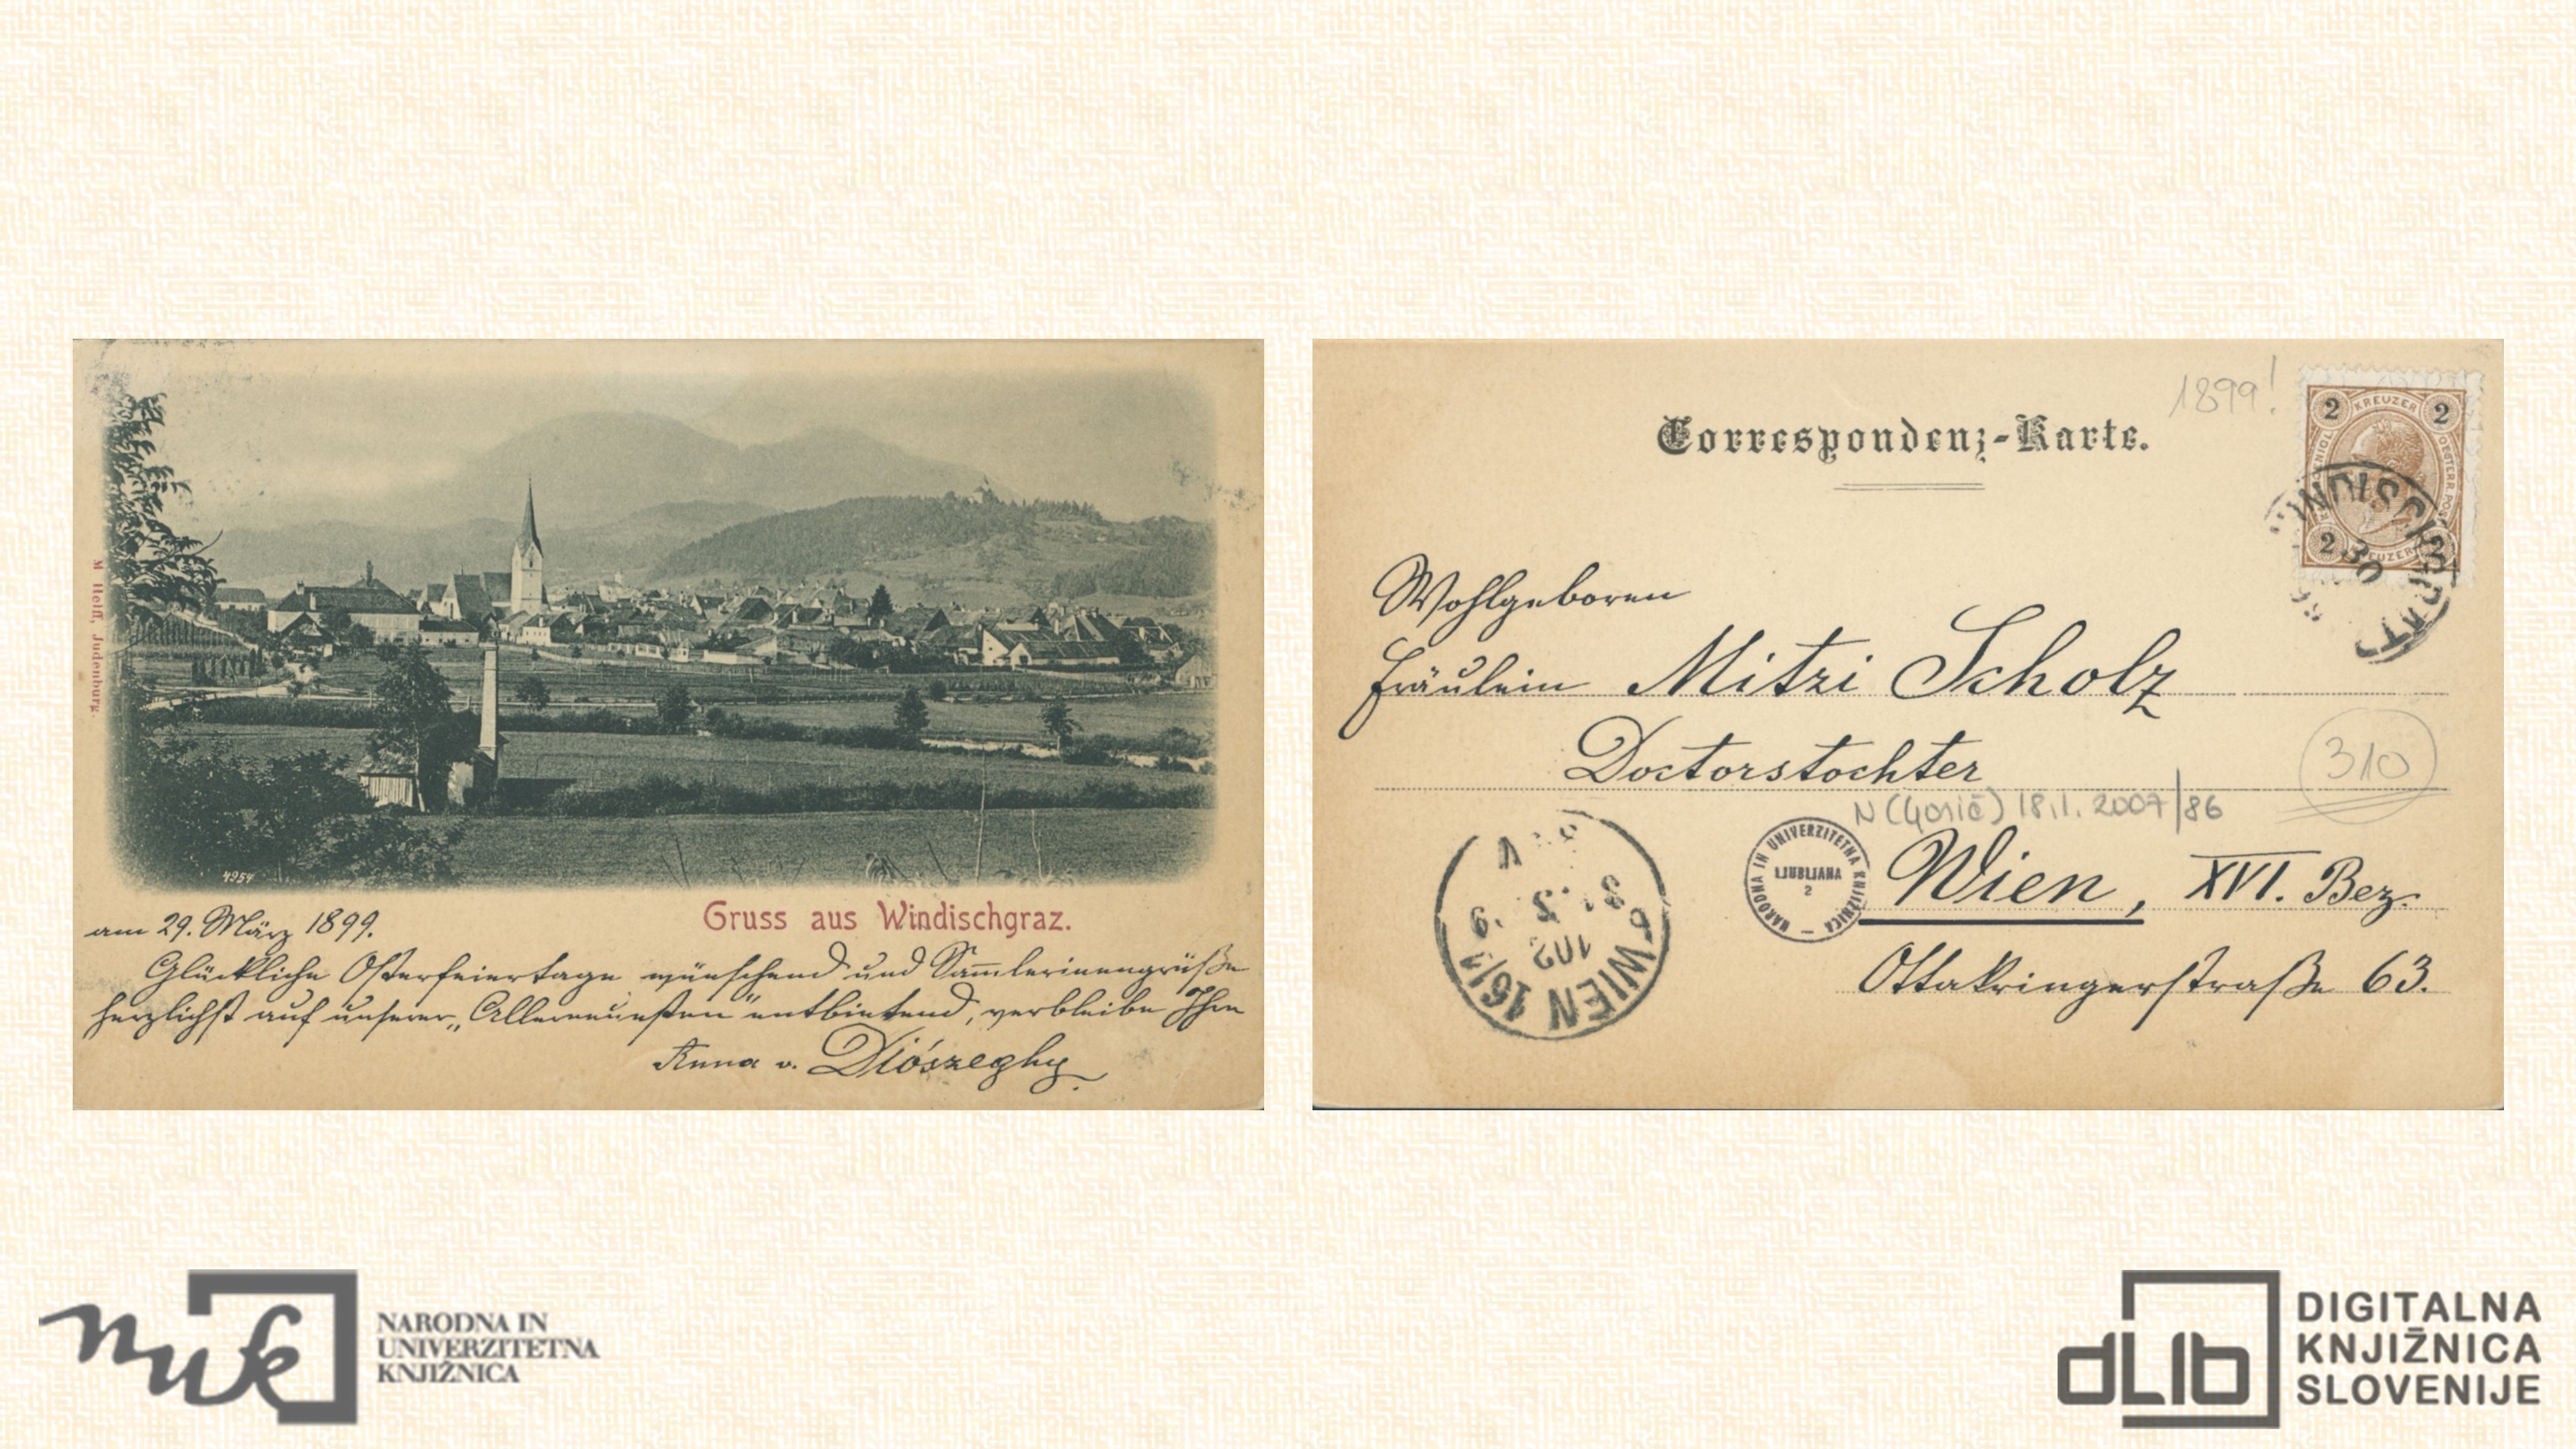 M. Helff, Judenburg.
4954
Gruss aus Windischgraz.
am 29. März 1899.
Glückliche Osterfeiertage wünschend und Sam̅lerinengrüße
herzlichst auf unserer „Allerneuesten" entbietend, verbleibe Ihre
Anna v. Diószeghy.
1899!
Correspondenz-Karte.
2 KREUZER 2
2 KREUZER 2
30
Wohlgeboren
Fräulein Mitzi Scholz
Doctorstochter
310
N (Gorič) 18.1.2007/86
NARODNA IN UNIVERZITETNA KNJIŽNICA
LJUBLJANA
2
Wien, XVI. Bez.
Ottakringerstraße 63.
WIEN 16/1
102
NUK
NARODNA IN
UNIVERZITETNA
KNJIŽNICA
dLib
DIGITALNA
KNJIŽNICA
SLOVENIJE